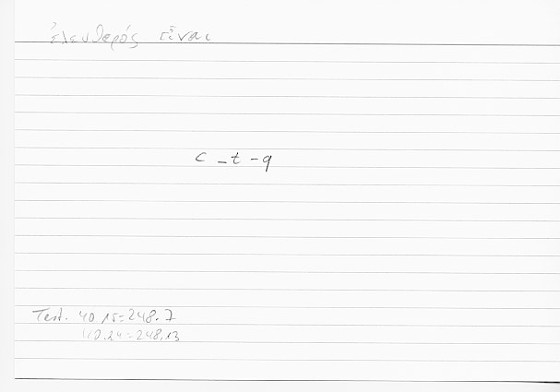 ἐλευθερός εἶναι
c - t - q
Test. 40.15 = 248.7
40.24 = 248.13